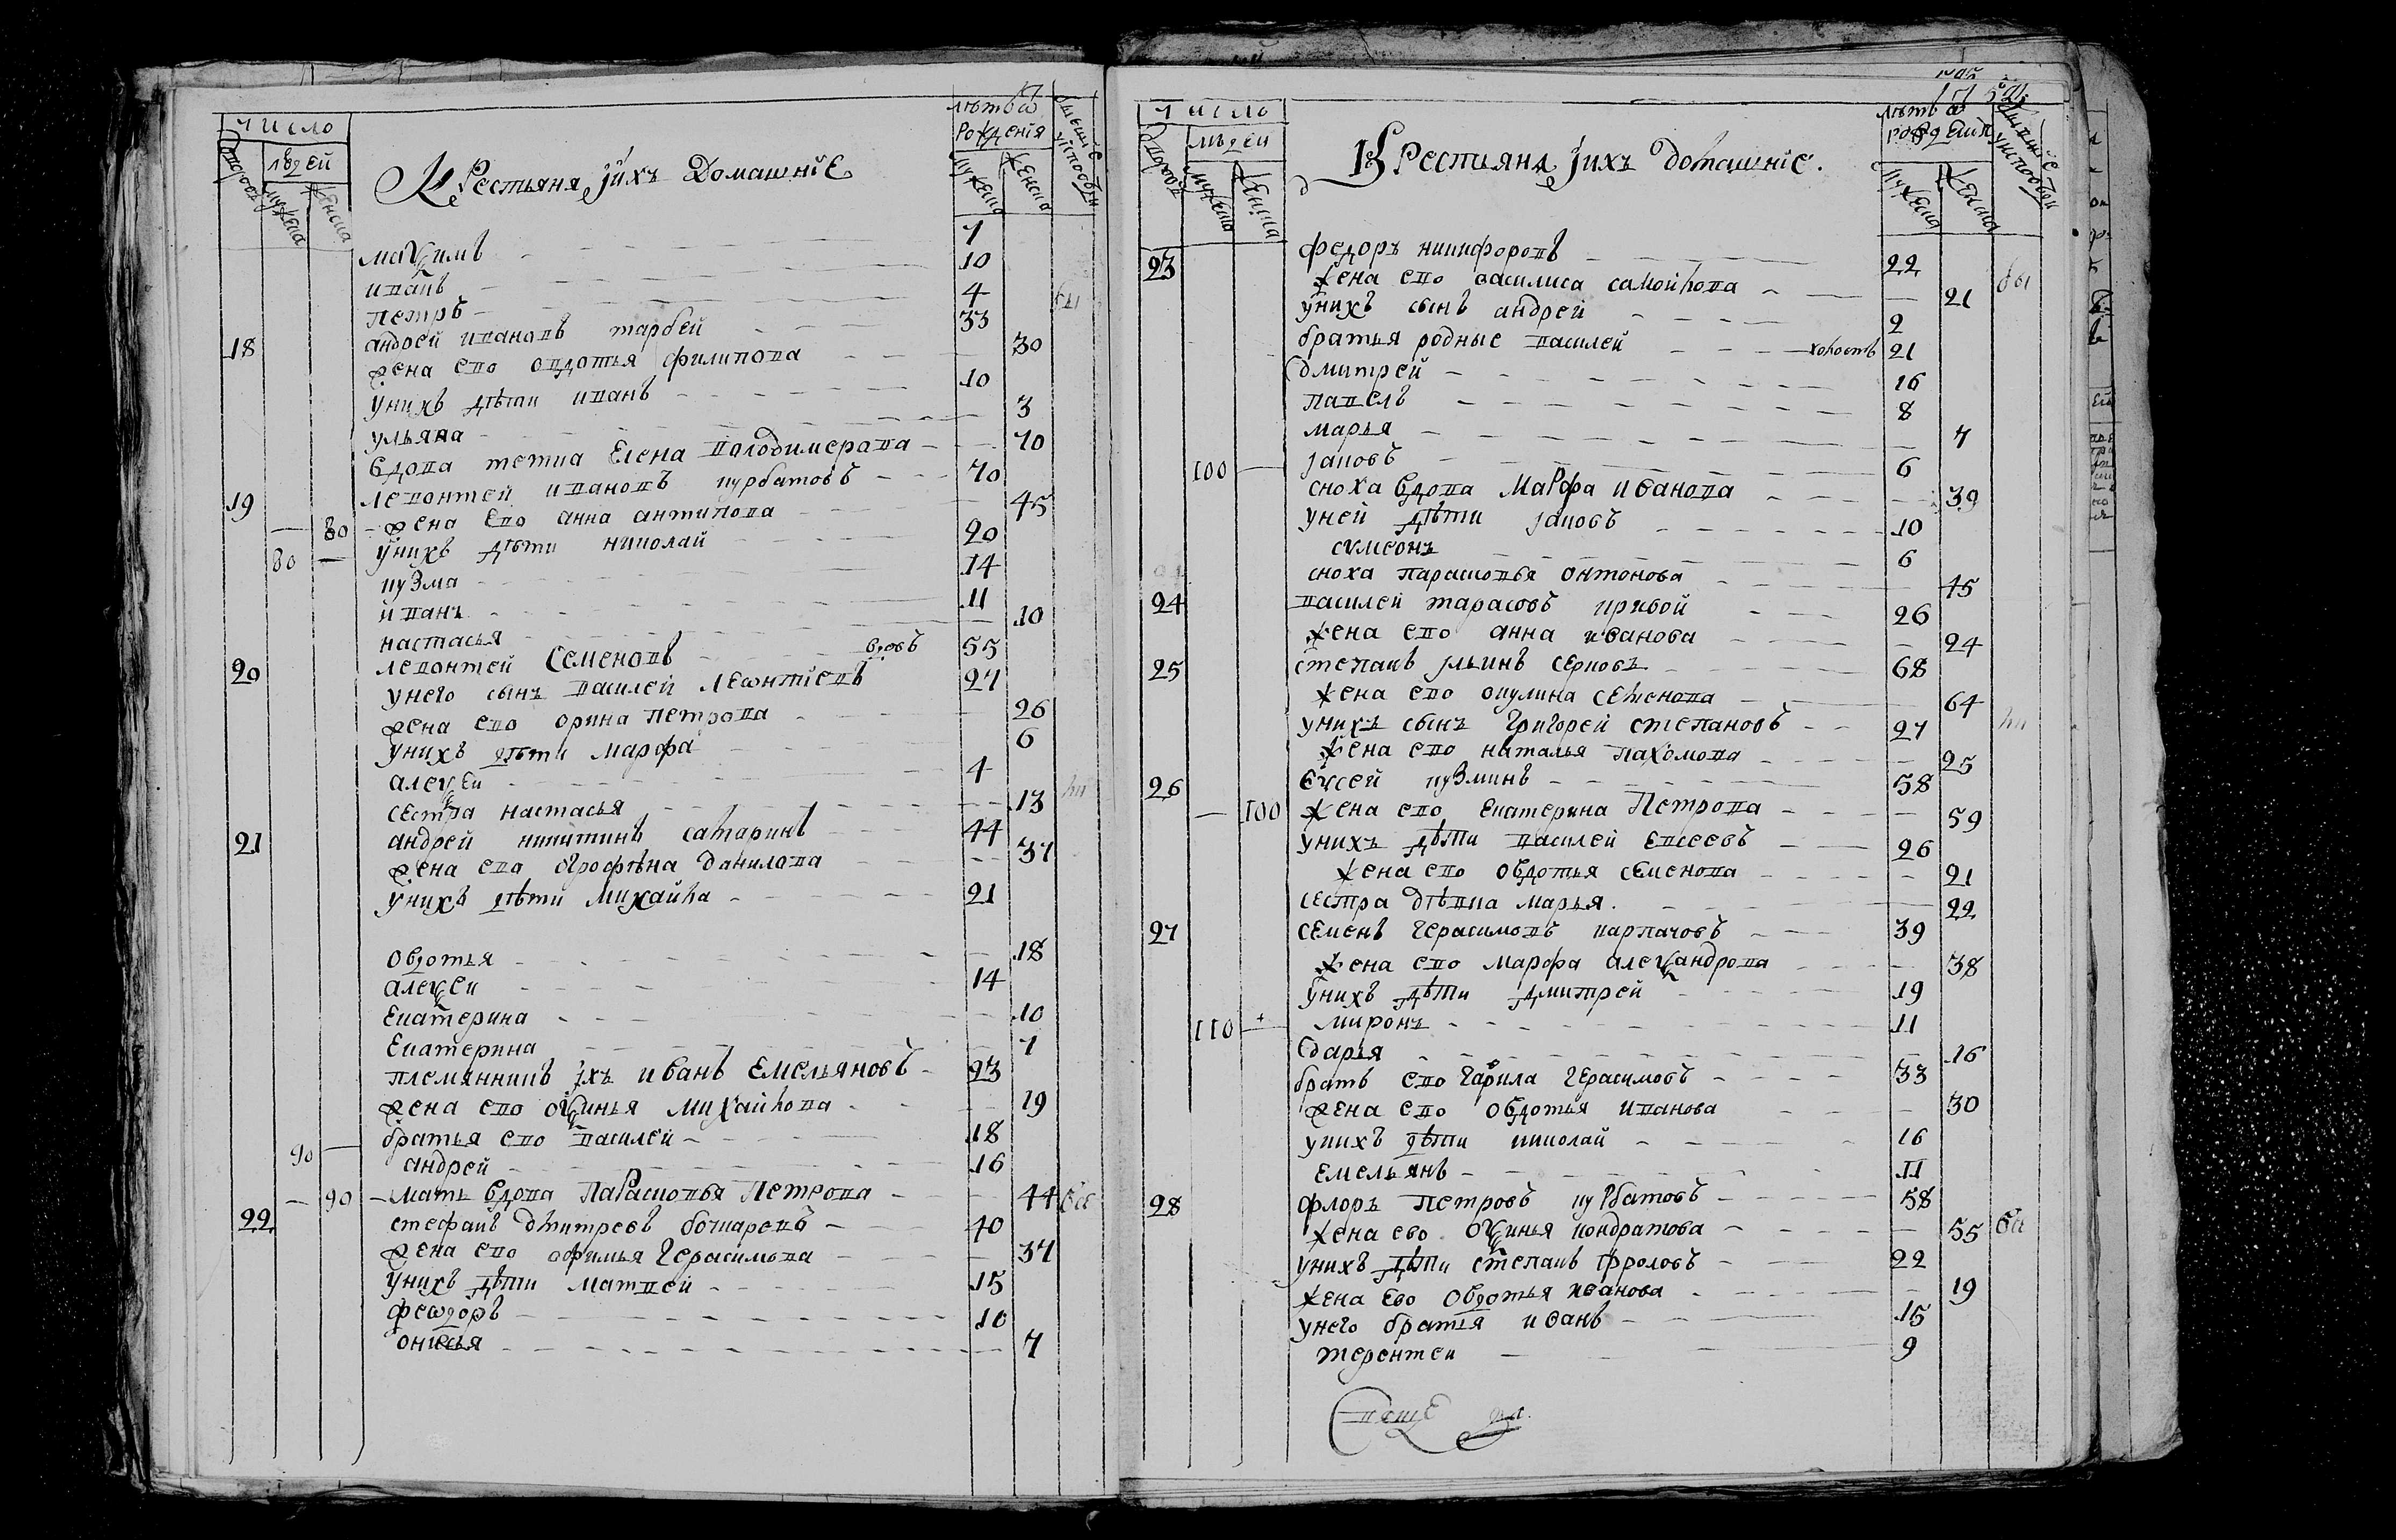 число
людей
дворовъ
мужеска
женска
Крестьяня, јихъ домашніе
лѣтъ ѿ рожденія
мужеска
женска
маѯимъ 7
иванъ 10
петръ 4
18 андрей ивановъ тарбей 33
жена ево овдотья филипова 30
унихъ дѣти иванъ 10
ульяна 3
вдова тетка елена володимерова 70
19 левонтей ивановъ курбатовъ 40
80 жена ево анна антипова 45
80 унихъ дѣти николай 20
кузма 14
иванъ 11
настасья 10
20 левонтей семеновъ вдовъ 55
унего сынъ василей леѡнтіевъ 27
жена ево орина петрова 26
унихъ дѣти марфа 6
алеѯей 4
сестра настасья 13
21 андрей никитинъ сатаринъ 44
жена ево огрофѣна данилова 37
унихъ дѣти михайла 21
овдотья 18
алеѯей 14
екатерина 10
екатерина 7
племянникъ јхъ иванъ емельяновъ 23
жена ево оѯинья михайлова 19
90 братья ево василей 18
андрей 16
90 мать вдова парасковья петрова 44
22 стефанъ дмитревъ бочаревъ 40
жена ево офимья герасимова 37
унихъ дѣти матвей 15
феѡдоръ 10
онисья 7
число
людей
дворовъ
мужеска
женска
Крестьяня јихъ домашніе.
лѣтъ ѿ рожденія
мужеска
женска
23 федоръ никифоровъ 22
жена ево василиса самойлова 21
унихъ сынъ андрей 2
братья родные василей холостъ 21
дмитрей 16
павелъ 8
марья 7
100 јаковъ 6
сноха вдова марфа иванова 39
уней дѣти јаковъ 10
сумеонъ 6
сноха парасковья онтонова 45
24 василей тарасовъ кривой 26
жена ево анна иванова 24
25 степанъ јльинъ серковъ 68
жена ево окулина семенова 64
унихъ сынъ григорей степановъ 27
жена ево наталья пахомова 25
26 евсей кузминъ 58
100 жена ево екатерина петрова 59
унихъ дѣти василей евсеевъ 26
жена ево овдотья семенова 21
сестра дѣвка марья. 22
27 семенъ герасимовъ карпачовъ 39
жена ево марфа алеѯандрова 38
унихъ дѣти дмитрей 19
110 миронъ 11
дарья 16
братъ ево гаврила герасимовъ 33
жена ево овдотья иванова 30
унихъ дѣти николай 16
емельянъ 11
28 флоръ петровъ курбатовъ 58
жена ево оѯинья кондратова 55
унихъ дѣти степанъ фроловъ 22
жена ево овдотья иванова 19
унего братья иванъ 15
терентей 9